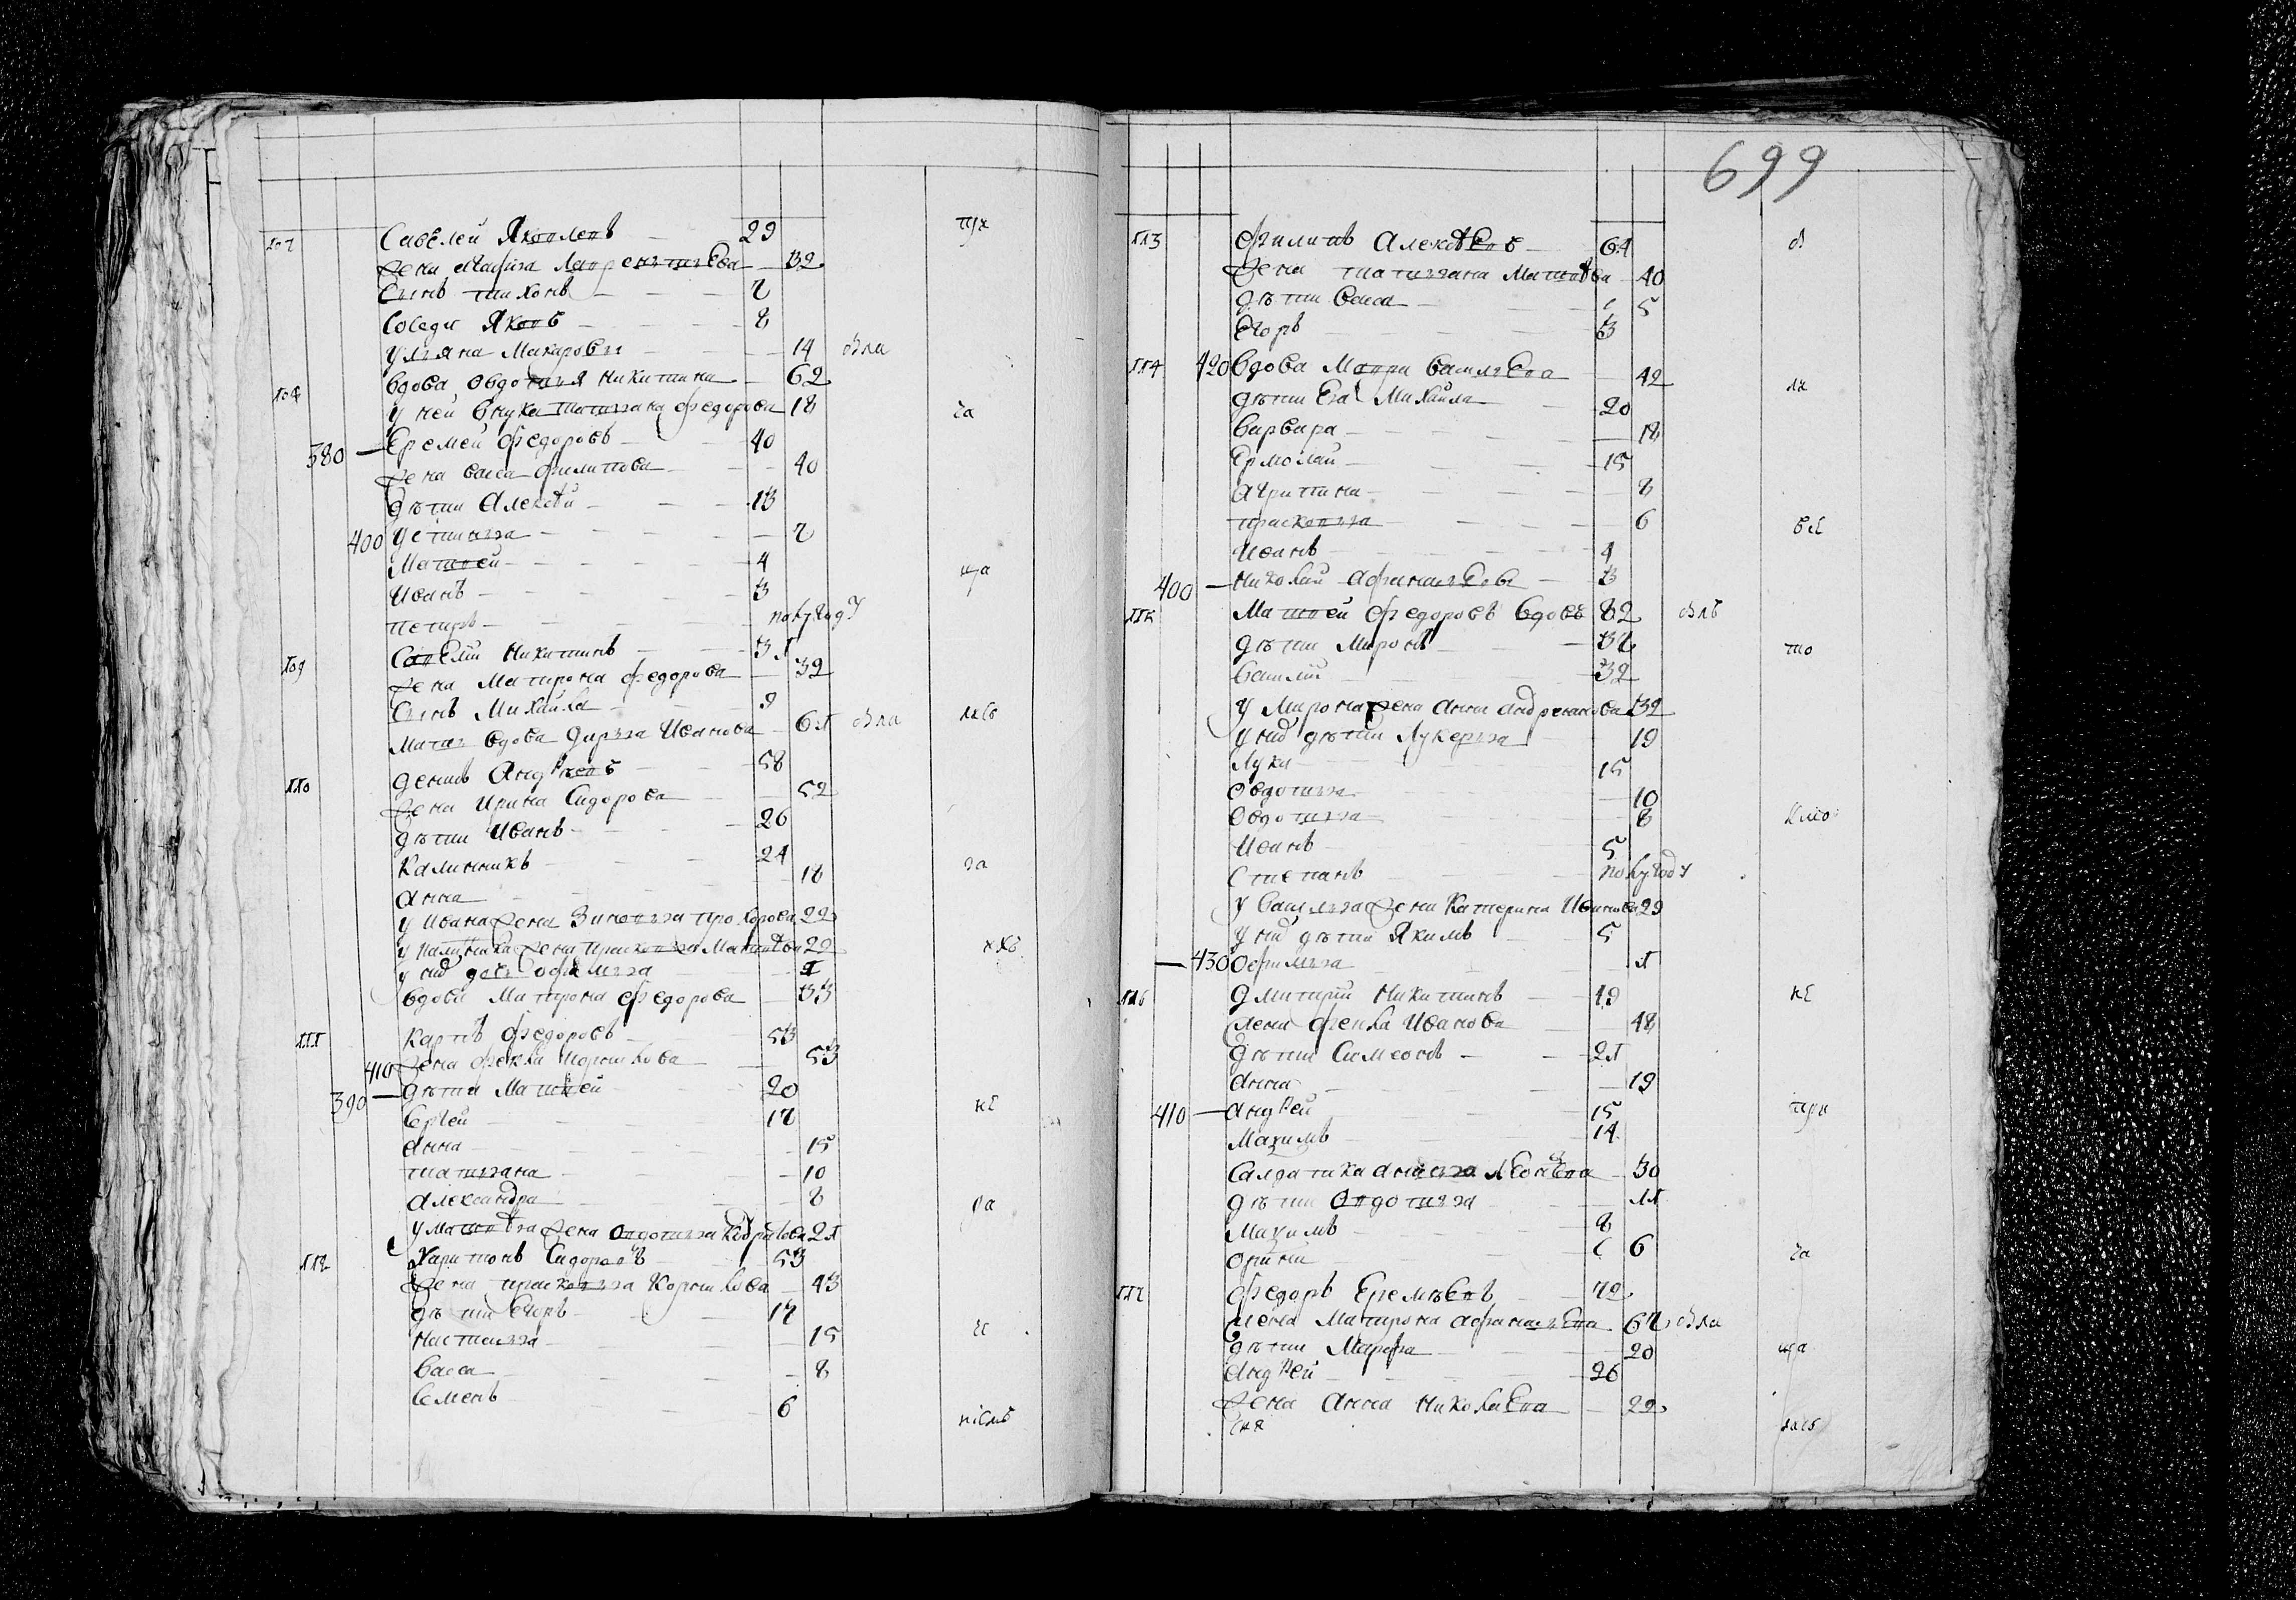 107 Савелей Яковлевъ 29
жена Марья Лаврентьева 32
сынъ Тихонъ 7
соседъ Яковъ 8
Ульяна Макарова 14 вла
108 вдова Овдотья Никитина 62
у ней внука Татьяна Федорова 18
380 Еремей Федоровъ 40
жена Васса Филипова 40
дѣти Алексѣй 13
400 Устинья 7
Матвей 4
Иванъ 3
Петръ полугоду
109 Савелiй Никитинъ 31
жена Матрона Федорова 32
сынъ Михайла 9
мать вдова Дарья Иванова 61 вла
110 Денисъ Андреевъ 58
жена Ирина Сидорова 52
дѣти Иванъ 26
Калинникъ 24
Анна 18
у Ивана жена Зиновья Прохорова 22
у Калинника жена Прасковья Матвѣева 22
у них дочь Офимья 1
вдова Матрона Федорова 33
111 Карпъ Федоровъ 53
410 жена Фекла 53
390 дѣти Матвей 20
Сергей 17
Анна 15
Татьяна 10
Александра 8
у Матвѣя жена Овдотья Кодратова 21
112 Харитонъ Сидоровъ 53
жена Прасковья 43
дѣти Егоръ 17
Настасья 15
Васса 8
Семенъ 6
699
113 Филипъ Алексѣевъ 64
жена Татьяна Матвѣева 40
дѣти Васса 5
Егоръ 3
114 420 вдова Мавра Васильева 42
дѣти Ева Михайла 20
Варвара 18
Ермолай 15
Агрипина 8
Прасковья 6
Иванъ 4
400 Николай Афанасьевъ 3
115 Матвей Федоровъ вдовъ 82 влъ
дѣти Миронъ 37
Василiй 32
у Мирона жена Анна Андреянова 32
у них дѣти Лукерья 19
Лука 15
Овдотья 10
Овдотья 8
Иванъ 5
Степанъ полугоду
у Василья жена Катерина Иванова 29
у них дѣти Якимъ 5
430 Офимья 1
116 Дмитрiй Никитинъ 49
жена Фекла Иванова 48
дѣти Симеонъ 21
Анна 19
410 Андрей 15
Максимъ 14
салдатка Анисья Леонтьева 30
дѣти Овдотья 11
Максимъ 8
Орина 6
117 Федоръ Еремѣевъ 72
жена Матрона Афанасьева 67 вла
дѣти Марфа 20
Андрей 26
жена Анна Николаева 22